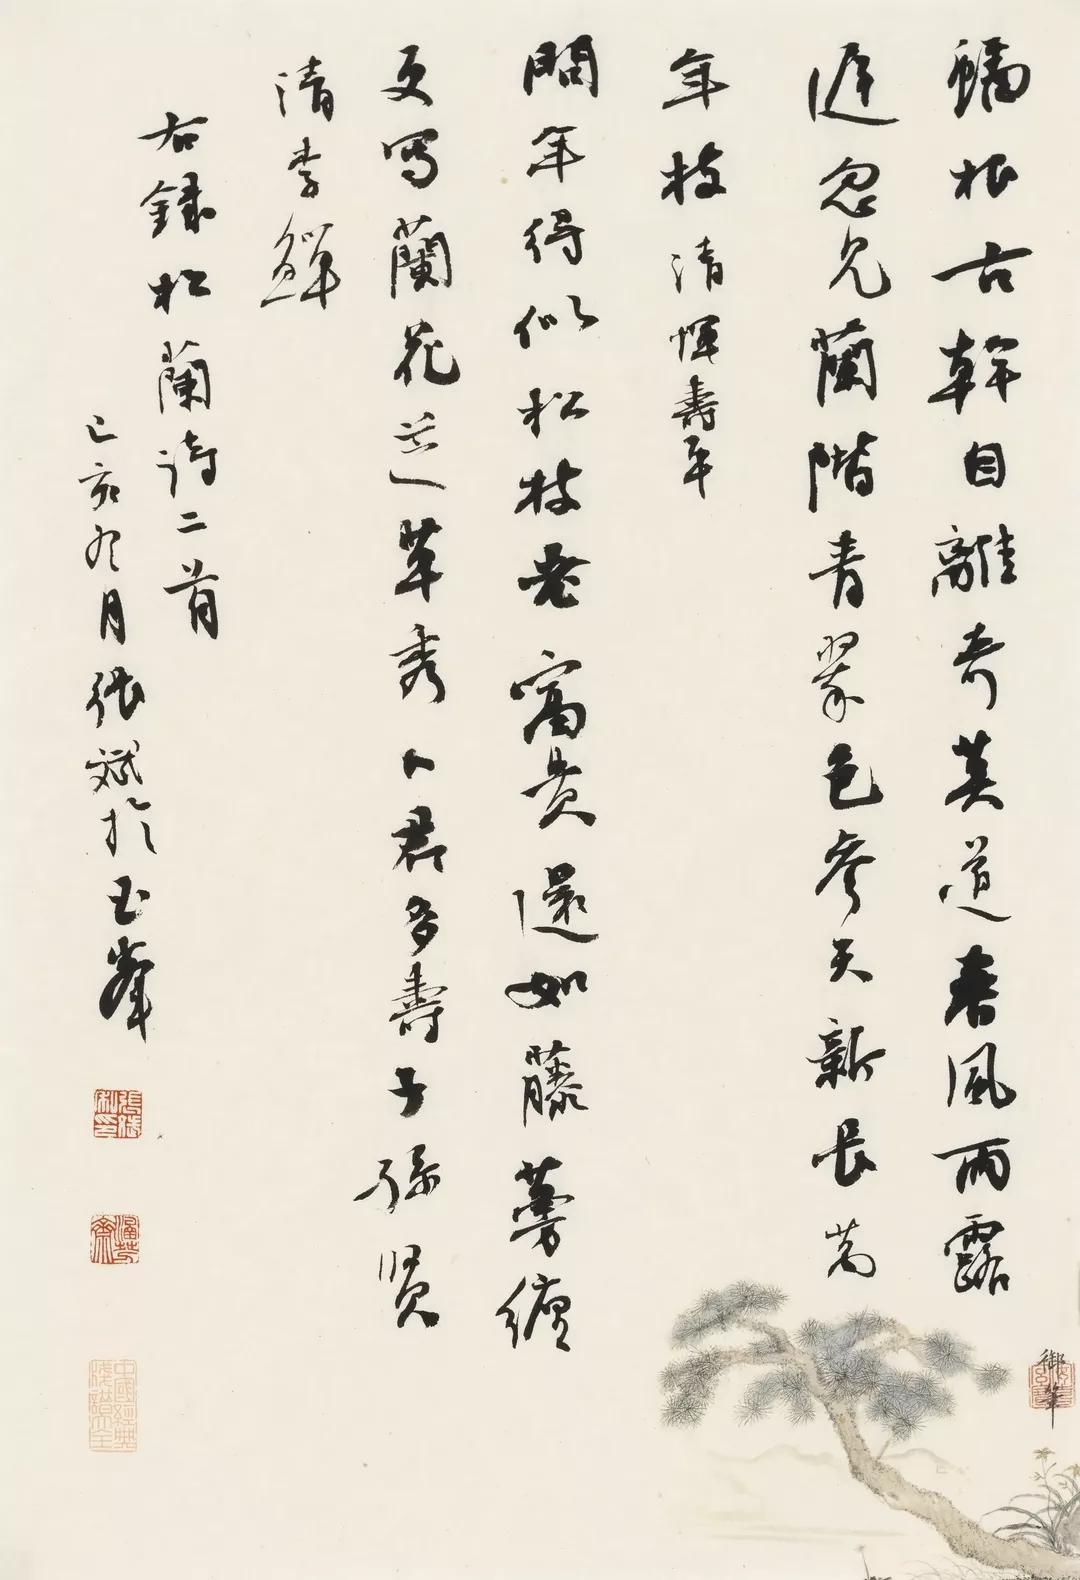 蟠根古幹自離奇莫道春風雨露
遲忽見蘭階青翠色參天新長萬
年枝 清惲壽平
問年得似松枝老富貴還如藤蔓纏
更寫蘭花芝草秀卜君多壽子孫賢
清李鱓
右錄松蘭詩二首
己亥冬月張斌於玉峯
張斌私印
御筆